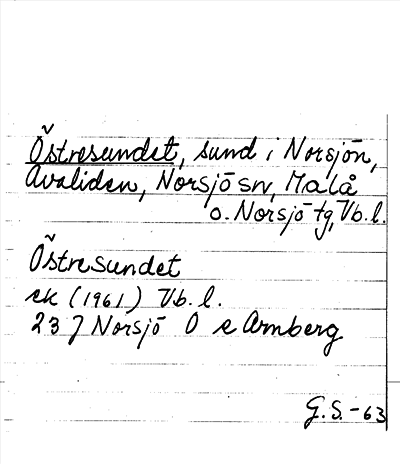 Östresundet, sund i Norsjön,
Avaliden, Norsjö sn, Malå
o. Norsjö tg, Vb. l.
Östresundet
ek (1961) Vb. l.
23 J Norsjö O e Arnberg
G. S. - 63